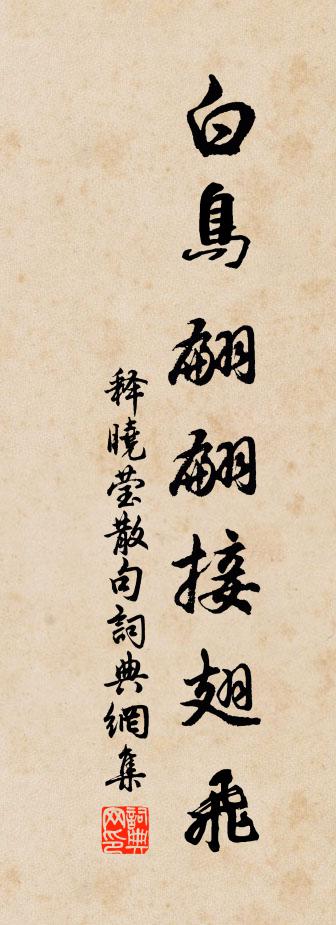 白鳥翩翩接翅飛
释曉莹散句詞典網集
詞典网印